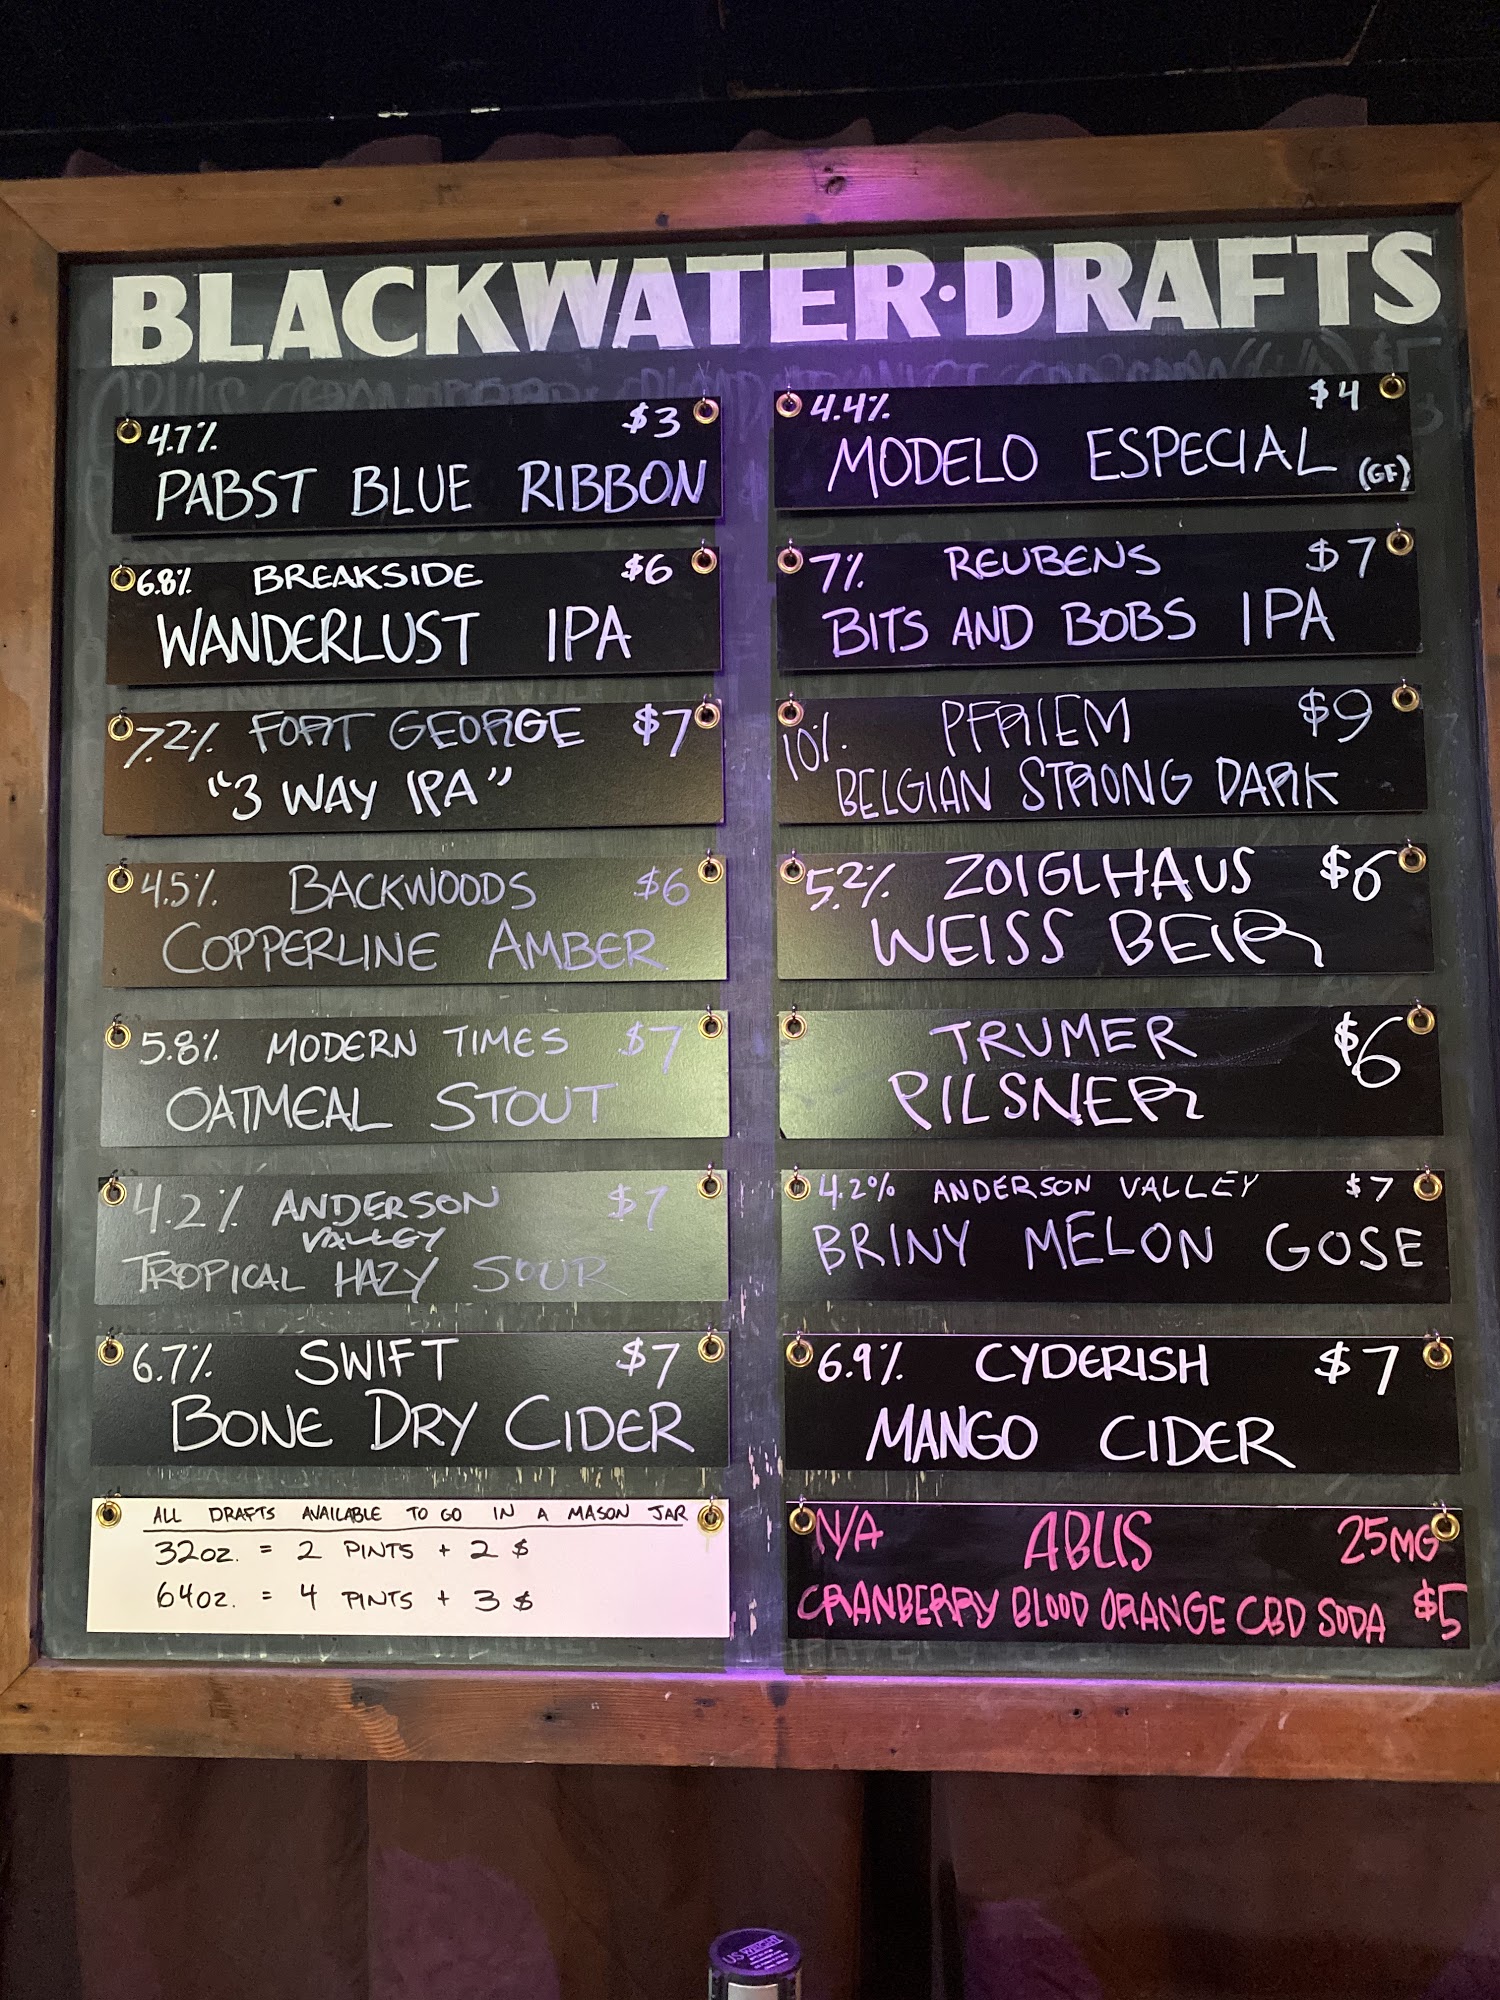 BLACKWATER·DRAFTS
4.7% $3
PABST BLUE RIBBON
6.8% BREAKSIDE $6
WANDERLUST IPA
7.2% FORT GEORGE $7
"3 WAY IPA"
4.5% BACKWOODS $6
COPPERLINE AMBER
5.8% MODERN TIMES $7
OATMEAL STOUT
4.2% ANDERSON $7
VALLEY
TROPICAL HAZY SOUR
6.7% SWIFT $7
BONE DRY CIDER
ALL DRAFTS AVAILABLE TO GO IN A MASON JAR
32oz. = 2 PINTS + 2 $
64oz. = 4 PINTS + 3 $
4.4% $4
MODELO ESPECIAL (GF)
7% REUBENS $7
BITS AND BOBS IPA
10% PFRIEM $9
BELGIAN STRONG DARK
5.2% ZOIGLHAUS $6
WEISS BEIR
TRUMER $6
PILSNER
4.2% ANDERSON VALLEY $7
BRINY MELON GOSE
6.9% CYDERISH $7
MANGO CIDER
N/A ABLIS 25MG
CRANBERRY BLOOD ORANGE CBD SODA $5
US WEIGHT